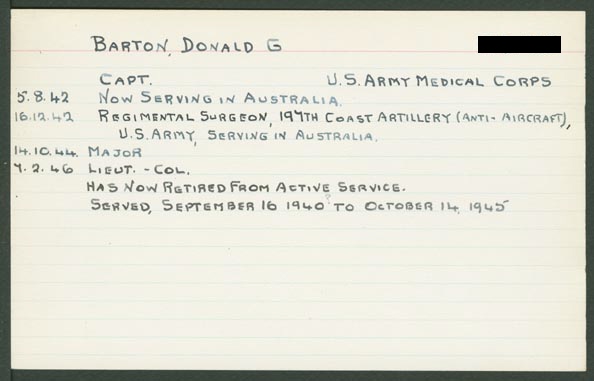 BARTON, DONALD G
CAPT. U.S. ARMY MEDICAL CORPS
5.8.42 NOW SERVING IN AUSTRALIA.
16.12.42 REGIMENTAL SURGEON, 197TH COAST ARTILLERY (ANTI-AIRCRAFT),
U.S. ARMY, SERVING IN AUSTRALIA.
14.10.44. MAJOR
7.2.46 LIEUT.-COL.
HAS NOW RETIRED FROM ACTIVE SERVICE.
SERVED, SEPTEMBER 16 1940? TO OCTOBER 14, 1945